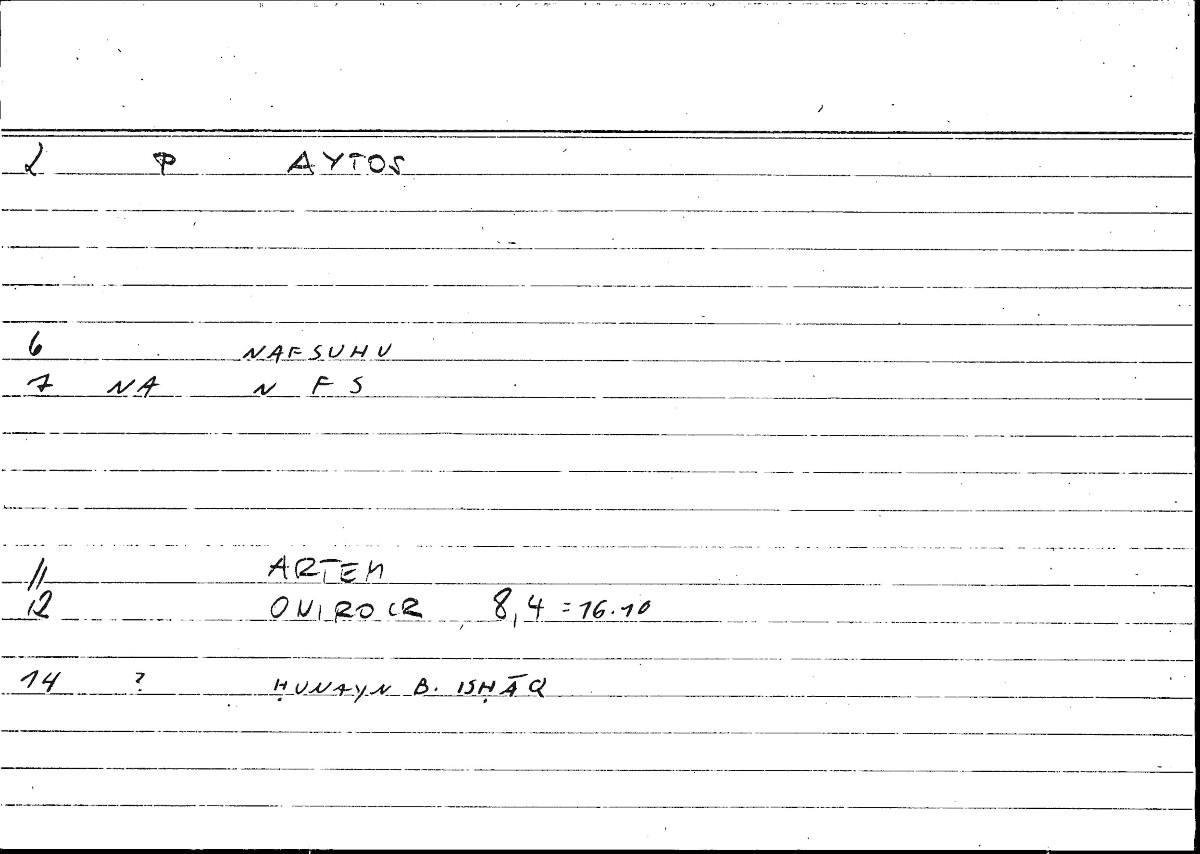 2 P AYTOS
6 NAFSUHU
7 NA N F S
11 ARTEM
12 ONIROCR 8,4 = 16.10
14 ? ḤUNAYN B. ISḤĀQ